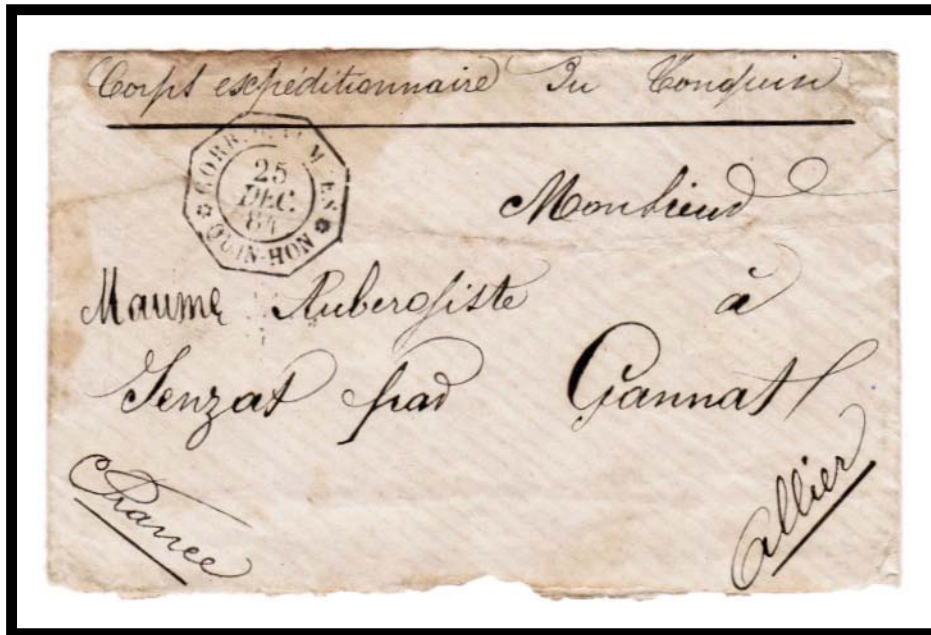 Corps expéditionnaire Du Tonquin
CORR. M. ES
25
DEC.
84
QUIN-HON
Monsieur
Maume Aubergiste à
Jenzat par Gannat
France
Allier